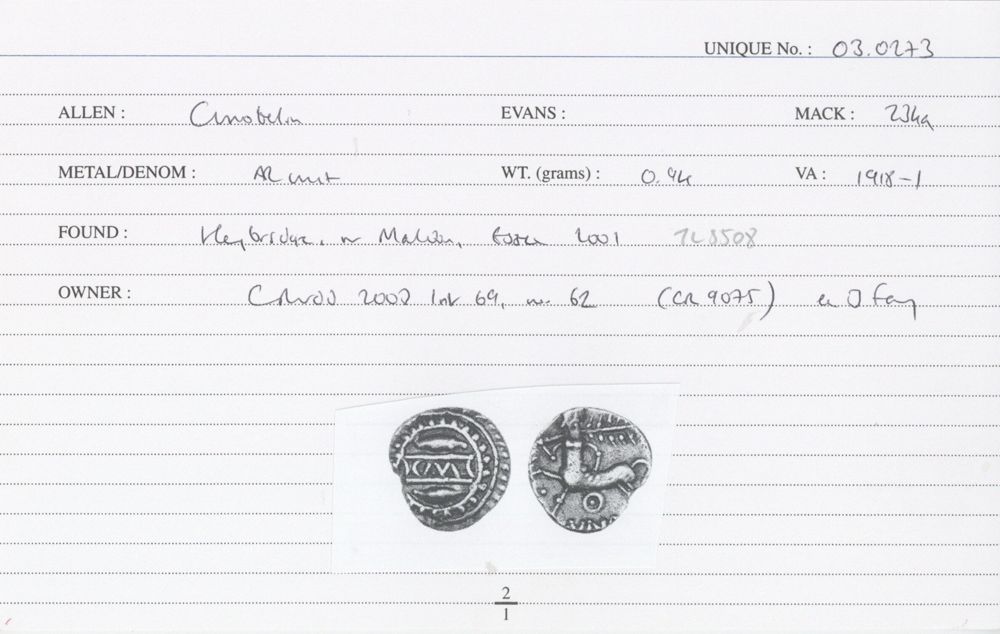 UNIQUE No. : 03.0273
ALLEN : Cunobelin EVANS : MACK : 234a
METAL/DENOM : AR unit WT. (grams) : 0.94 VA : 1918-1
FOUND : Heybridge, nr Maldon, Essex 2001 TL8508
OWNER : 2002 List 69, no. 62 (CR 9075)
CAM
2
1